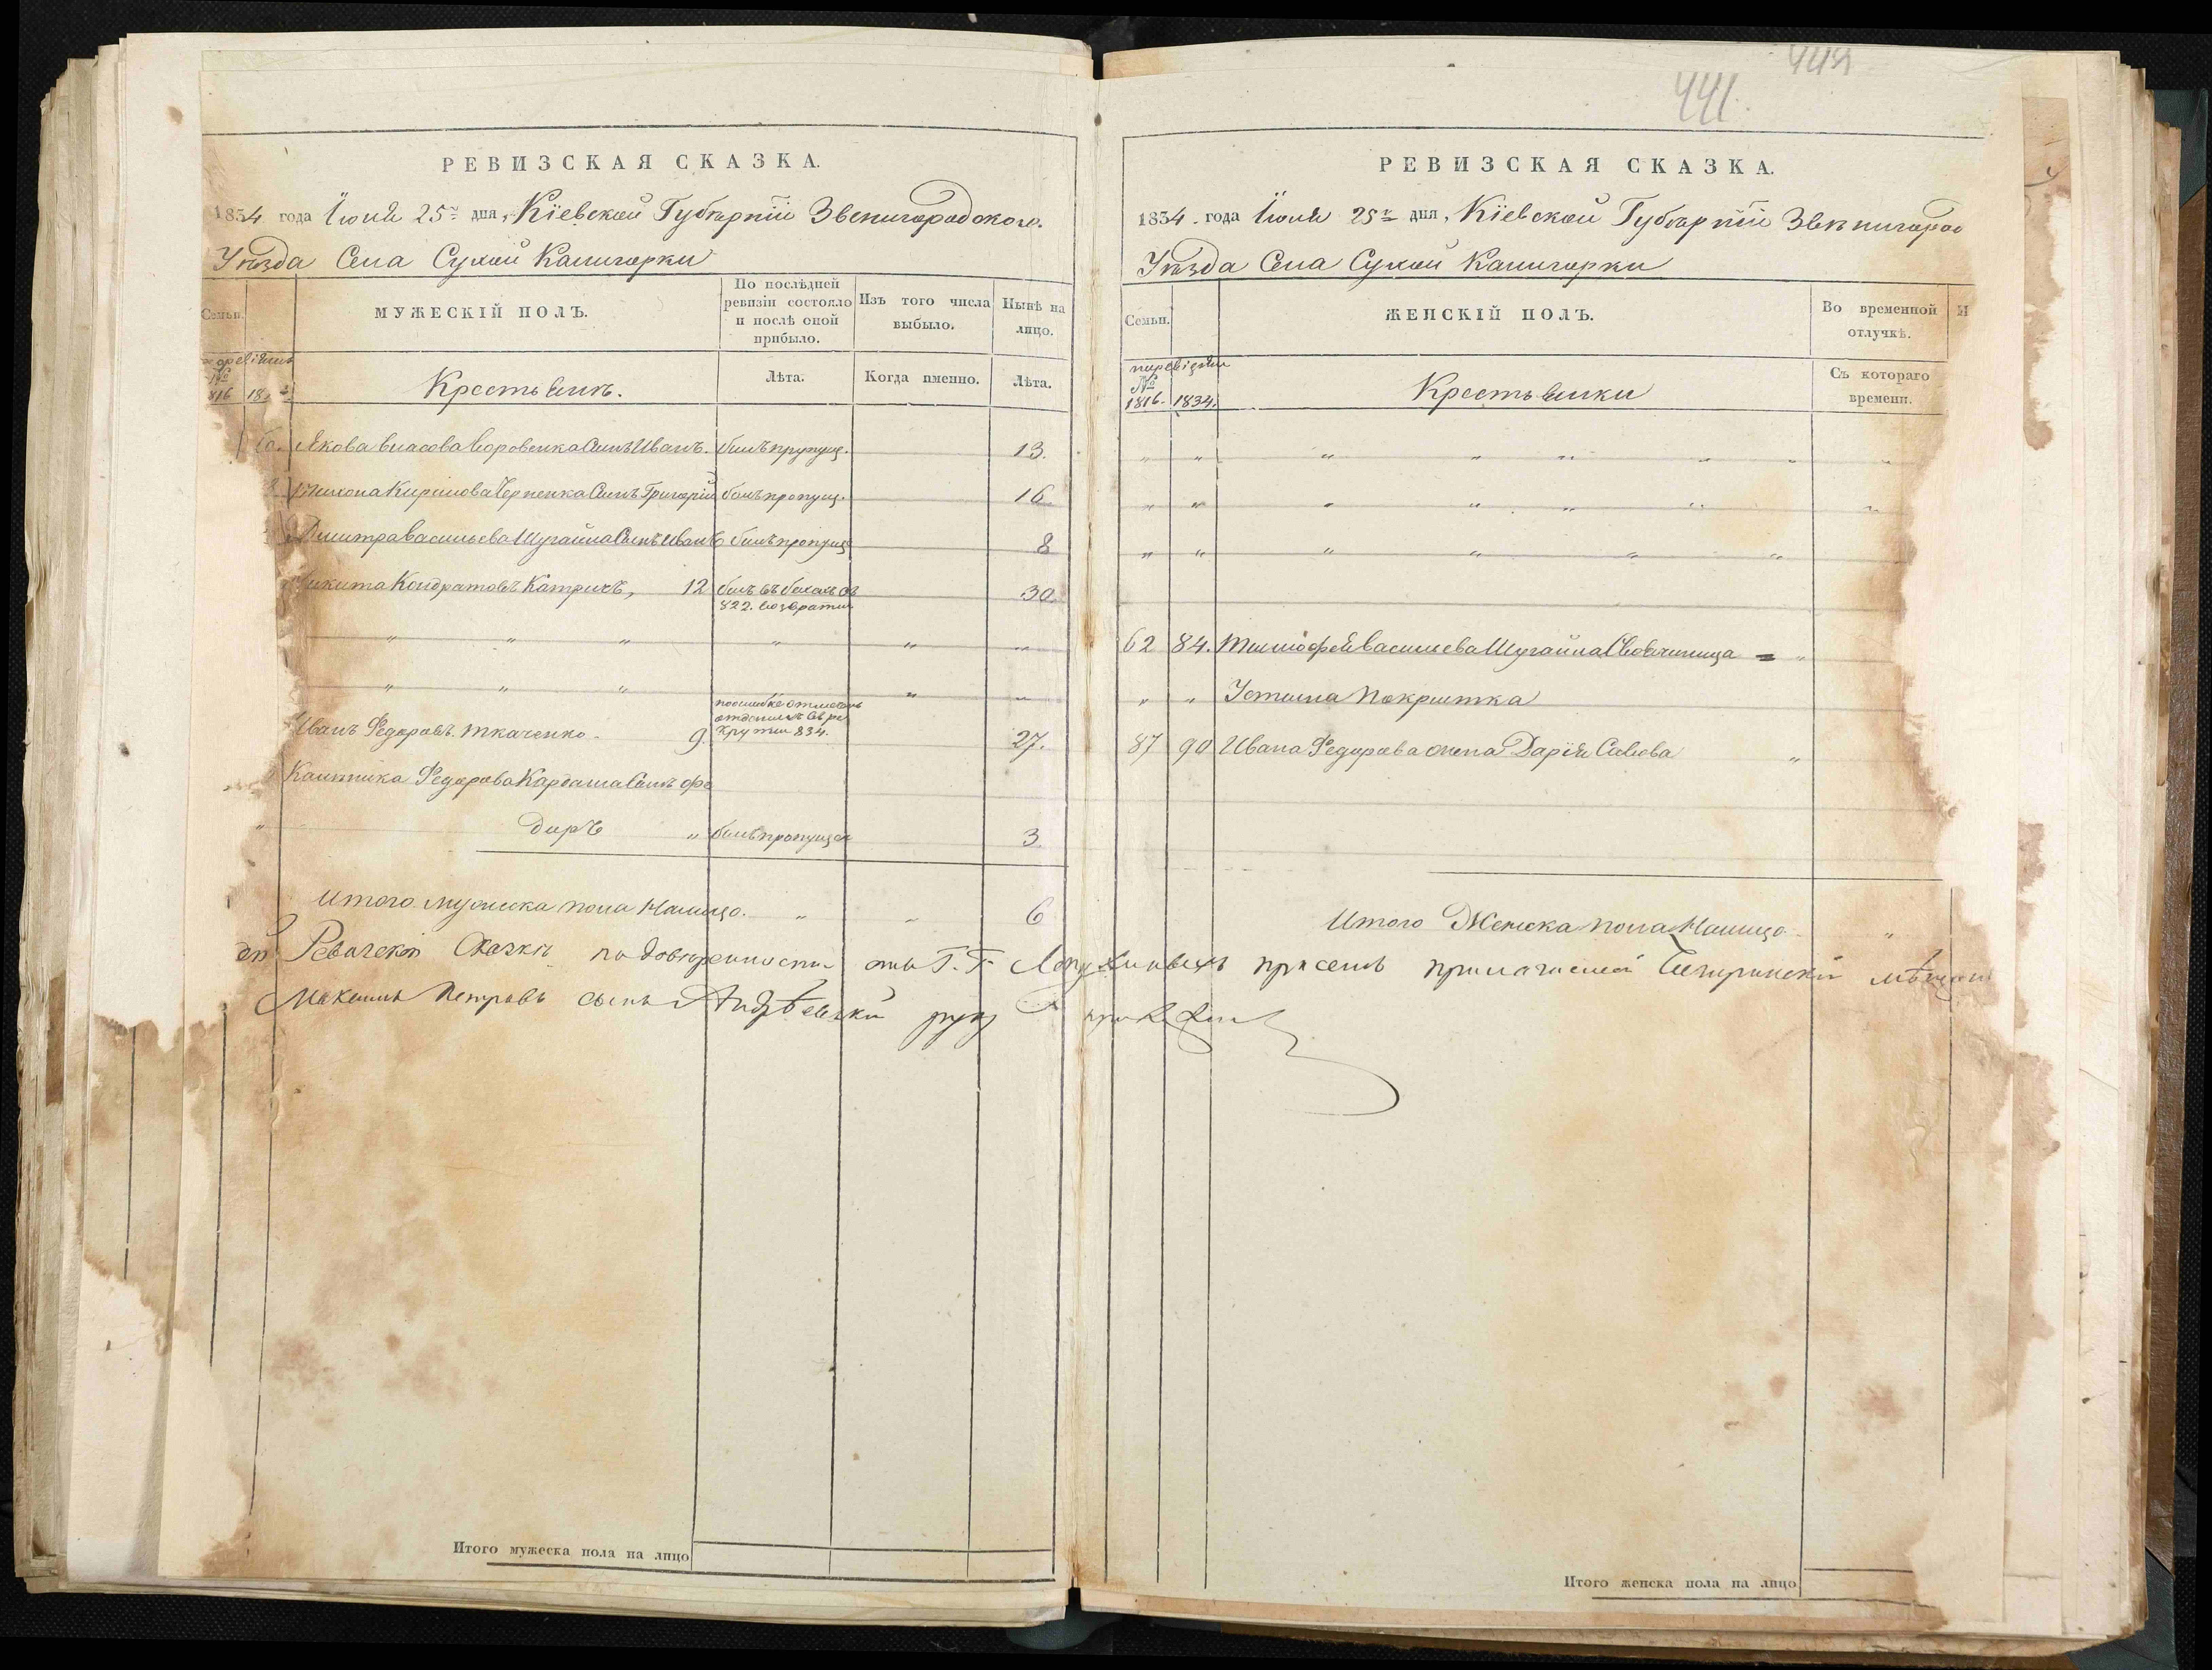 РЕВИЗСКАЯ СКАЗКА.
1834 года Іюня 25го дня, Кіевской Губерніи Звенигородского
Уѣзда Села Сухой Калигорки
Семьи.
МУЖЕСКІЙ ПОЛЪ.
По послѣдней ревизіи состояло и послѣ оной прибыло.
Изъ того числа выбыло.
Нынѣ на лицо.
№
816 18
Крестьяне.
Лѣта.
Когда именно.
Лѣта.
Якова Власова Сынъ Иванъ. былъ 13.
Кирилова Сынъ Григорій былъ пропущ. 16
Дмитра Васильева Шугайла Сынъ Иванъ былъ пропущ 8
Никита Кондратовъ Катричъ, 12 былъ въ бегахъ въ 822. возврати 30
" " " " " "
" " " " "
по ошибке отмечень
отданымъ въ ре
Иванъ Федоровъ Ткаченко. 9. круты 834. 27.
Федорова Кардаша Сынъ Фе
доръ " былъ пропущен 3.
Итого мужеска пола Налицо. " " 6
Ревизской Сказки по довѣренности отъ Г. Г.
Максимъ Петровъ сынъ руку приложилъ
Итого мужеска пола на лицо
441.
РЕВИЗСКАЯ СКАЗКА.
1834 года Іюня 25го дня, Кіевской Губерніи Звенигород
Уѣзда Села Сухой Калигорки
Семьи.
ЖЕНСКІЙ ПОЛЪ.
Во временной отлучкѣ.
Н
по ревизіи
№
1816. 1834.
Крестьянки
Съ котораго времени.
" " " " " " " "
" " " " " " "
" " " " " "
62 84. Тимофея Васильева Шугайла Своячиница "
" " Устина Покритка
87 90 Ивана Федорова жена Дарія Савова "
Итого Женска пола Налицо "
Итого женска пола на лицо